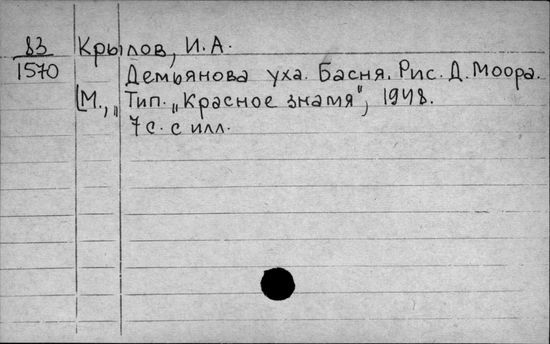 83
1570
Крылов, И.А.
Демьянова уха. Басня. Рис. Д. Моора.
[М., Тип. „Красное знамя", 1948.
7 с. с илл.